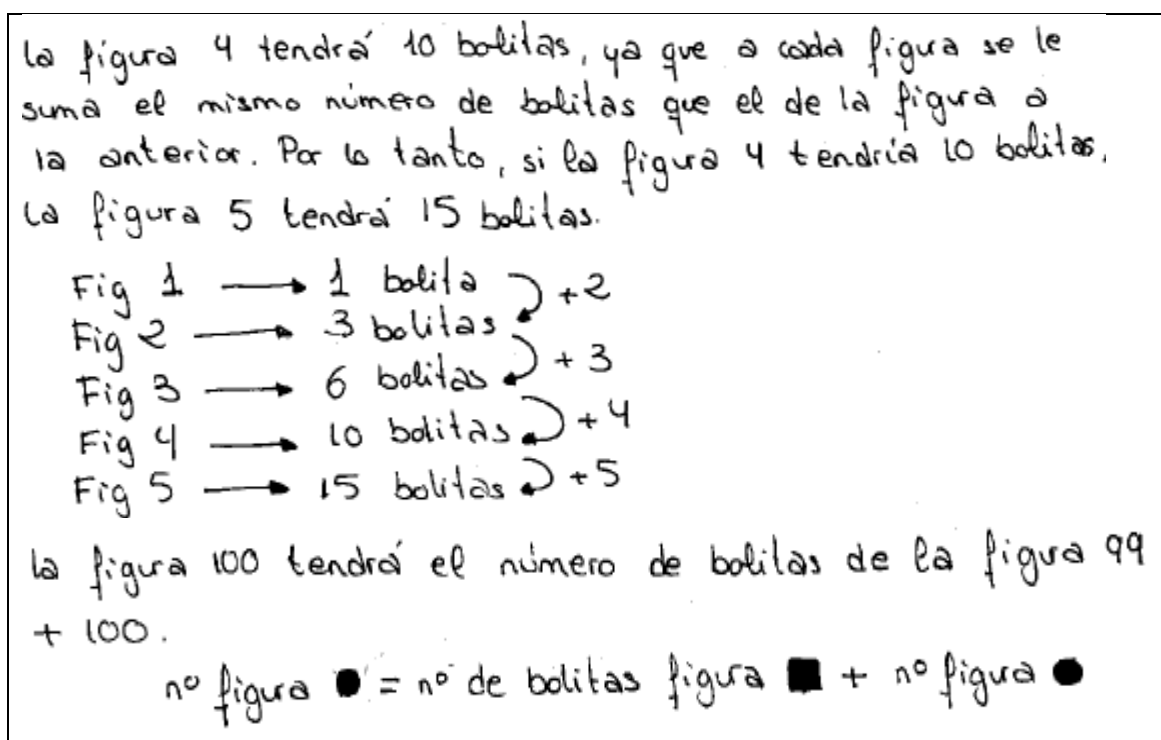 la figura 4 tendrá 10 bolitas, ya que a cada figura se le
suma el mismo número de bolitas que el de la figura a
la anterior. Por lo tanto, si la figura 4 tendría 10 bolitas,
la figura 5 tendrá 15 bolitas.
Fig 1 → 1 bolita +2
Fig 2 → 3 bolitas +3
Fig 3 → 6 bolitas +4
Fig 4 → 10 bolitas +5
Fig 5 → 15 bolitas
la figura 100 tendrá el número de bolitas de la figura 99
+ 100.
nº figura ● = nº de bolitas figura ■ + nº figura ●